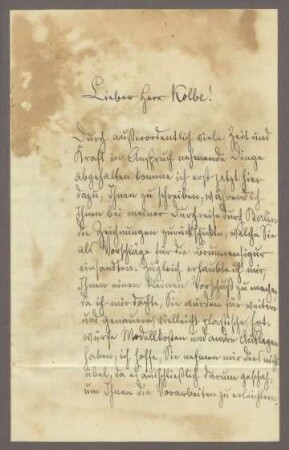 Lieber Herr Kolbe!
Durch außerordentlich viele Zeit und
Kraft in Anspruch nehmende Dinge
abgehalten komme ich erst jetzt hier
dazu, Ihnen zu schreiben, während ich
Ihnen bei meiner Durchreise durch Berlin
die Zeichnungen zurückschickte, welche Sie
als Vorschläge für die Brunnenfigur
einsandten. Zugleich erlaubte ich mir,
Ihnen einen kleinen Vorschuß zu machen
da ich mir dachte, Sie würden für weitere
und genauere vielleicht plastische Ent-
würfe Modellkosten und andre Auslagen
haben; ich hoffe, Sie nehmen mir dies nicht
übel, da es ausschließlich darum geschah,
um Ihnen die Vorarbeiten zu erleichtern.